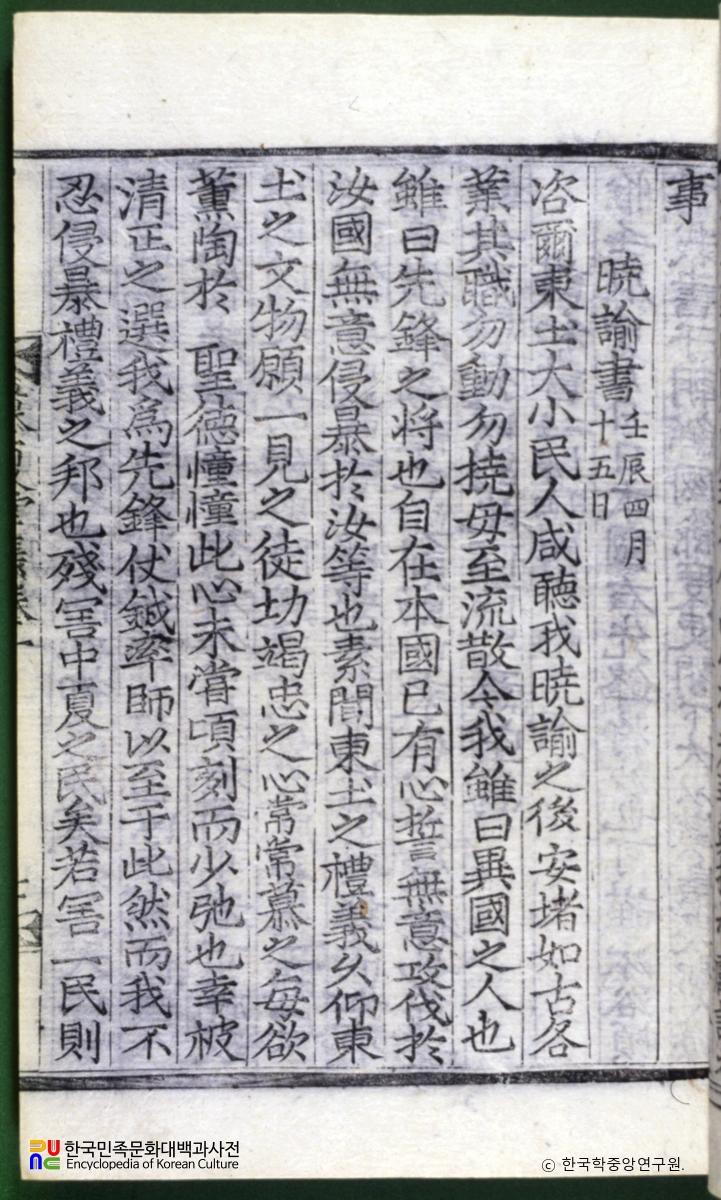 事
曉諭書壬辰四月十五日
咨爾東土大小民人咸聽我曉諭之後安堵如古各
業其職勿動勿撓毋至流散今我雖曰異國之人也
雖曰先鋒之将也自在本國已有心誓無意攻伐於
汝國無意侵暴於汝等也素聞東土之禮義久仰東
土之文物願一見之徒切竭忠之心常常慕之每欲
薰陶於 聖德憧憧此心未嘗頃刻而少弛也幸被
清正之選我爲先鋒仗鉞率師以至于此然而我不
忍侵暴禮義之邦也殘害中夏之民矣若害一民則
한국민족문화대백과사전
Encyclopedia of Korean Culture
ⓒ 한국학중앙연구원.